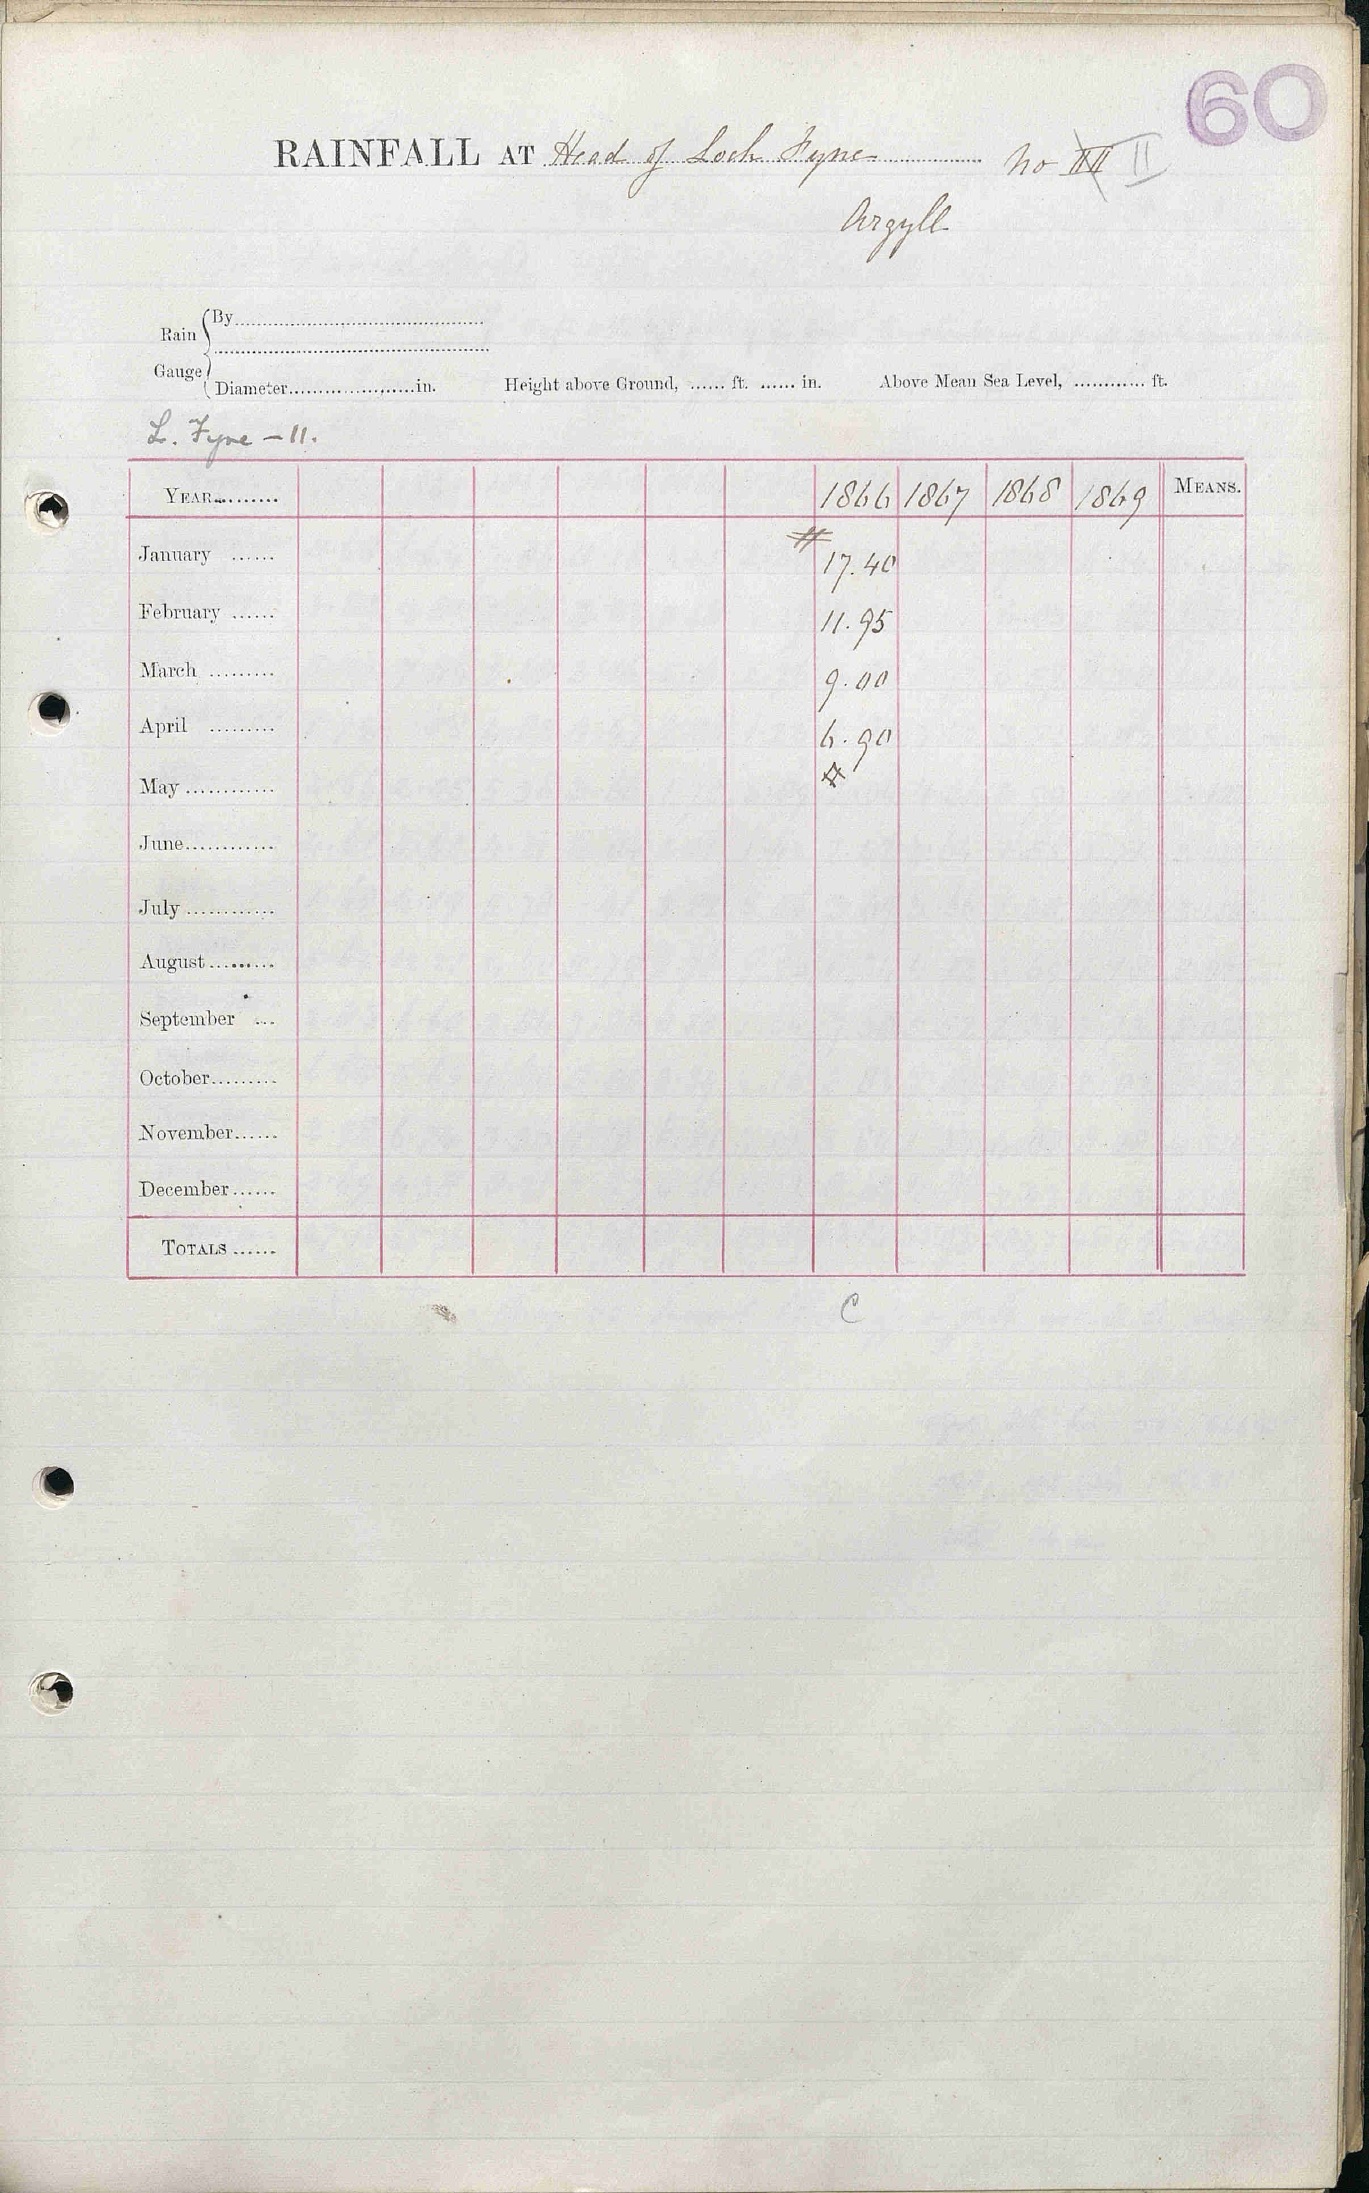 60
RAINFALL AT Head of Loch Fyne No III II
Argyll
Rain Gauge { By
Diameter in. Height above Ground, ft. in. Above Mean Sea Level, ft.
L. Fyne - 11.
YEAR 1866 1867 1868 1869 MEANS.
January 17.40
February 11.95
March 9.00
April 6.90
May
June
July
August
September
October
November
December
TOTALS
C